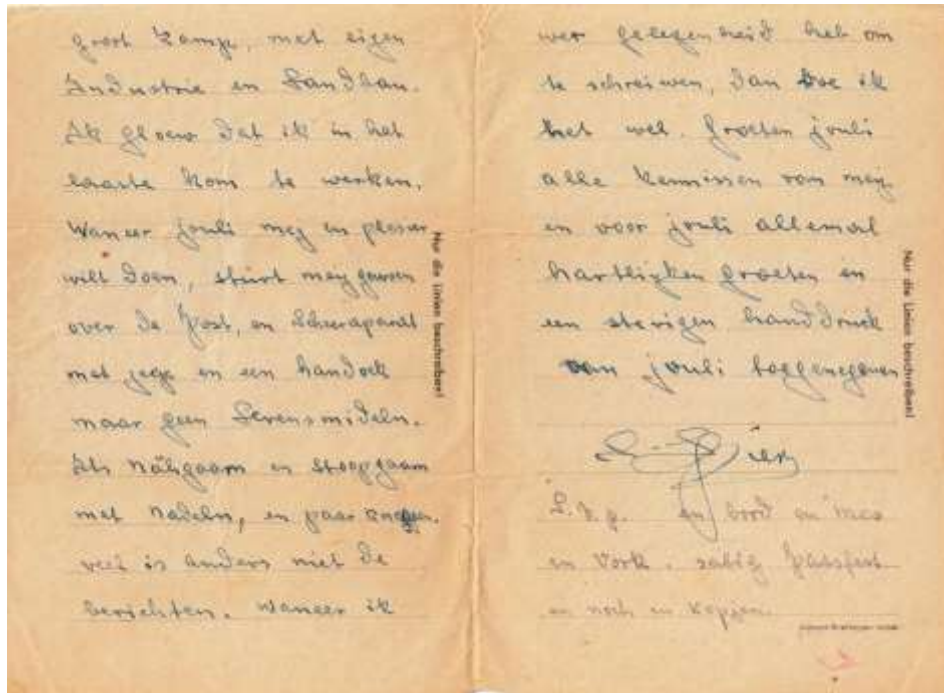 groot Kamp, met eigen
Industrie en Landbau.
Ik gloew dat ik in het
laaste kom te werken.
Waneer jouli mey en plesier
wilt doen, stürt mey gaween
over de Post, en Scheraparat
met zeep en een handoek
maar geen Levensmideln.
Als Nähgaarn en stoopgaarn
met Nadeln, en paar
veel is anders niet de
berichten. Waneer ik
Nur die Linien beschreiben!
wer gelegenheid heb om
te schreiwen, dan doe ik
het wel. Groeten jouli
alle kennissen van mey
en voor jouli allemal
hartliyken groeten en
een stevigen handdruck
van jouli toggenegenen
en bord en mes
en Vork.
en noch en Kopjen
Nur die Linien beschreiben!